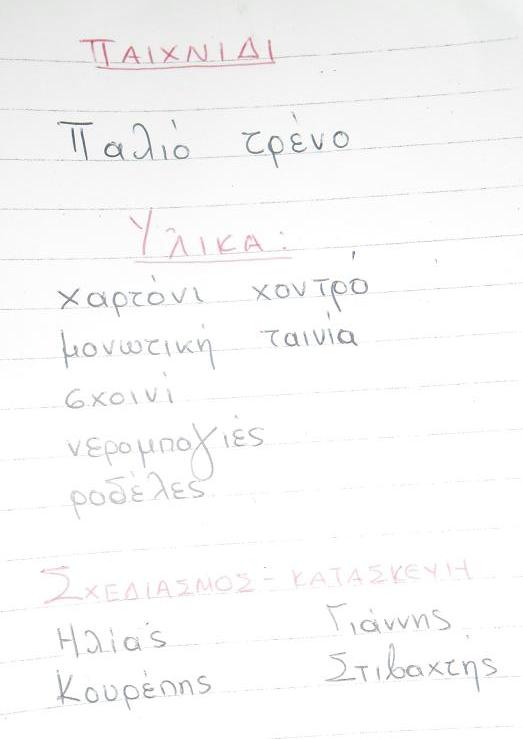 ΠΑΙΧΝΙΔΙ
Παλιό τρένο
ΥΛΙΚΑ:
χαρτόνι χοντρό
μονωτική ταινία
σχοινί
νερομπογιές
ροδέλες
ΣΧΕΔΙΑΣΜΟΣ - ΚΑΤΑΣΚΕΥΗ
Ηλίας Γιάννης
Κουρέπης Στιβαχτής